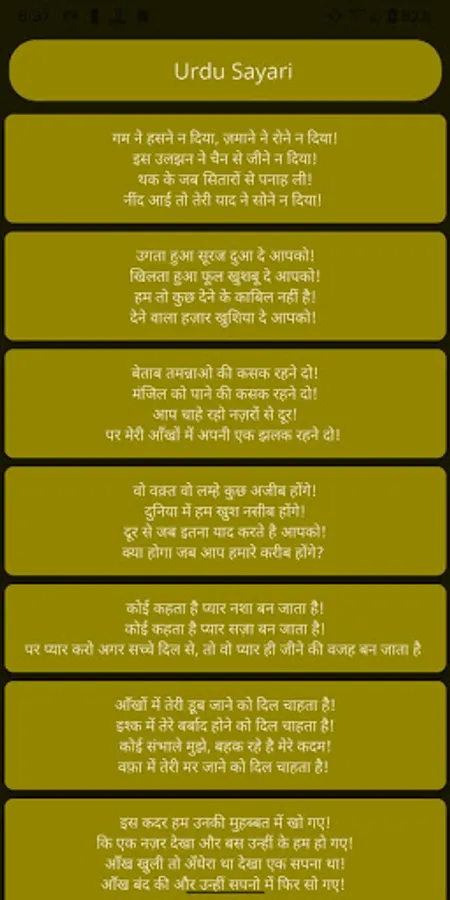 Urdu Sayari
गम ने हसने न दिया, ज़माने ने रोने न दिया!
इस उलझन ने चैन से जीने न दिया!
थक के जब सितारों से पनाह ली!
नींद आई तो तेरी याद ने सोने न दिया!
उगता हुआ सूरज दुआ दे आपको!
खिलता हुआ फूल खुशबू दे आपको!
हम तो कुछ देने के काबिल नहीं है!
देने वाला हज़ार खुशिया दे आपको!
बेताब तमन्नाओ की कसक रहने दो!
मंजिल को पाने की कसक रहने दो!
आप चाहे रहो नज़रों से दूर!
पर मेरी आँखों में अपनी एक झलक रहने दो!
वो वक़्त वो लम्हे कुछ अजीब होंगे!
दुनिया में हम खुश नसीब होंगे!
दूर से जब इतना याद करते है आपको!
क्या होगा जब आप हमारे करीब होंगे?
कोई कहता है प्यार नशा बन जाता है!
कोई कहता है प्यार सज़ा बन जाता है!
पर प्यार करो अगर सच्चे दिल से, तो वो प्यार ही जीने की वजह बन जाता है
आँखों में तेरी डूब जाने को दिल चाहता है!
इश्क में तेरे बर्बाद होने को दिल चाहता है!
कोई संभाले मुझे, बहक रहे है मेरे कदम!
वफ़ा में तेरी मर जाने को दिल चाहता है!
इस कदर हम उनकी मुहब्बत में खो गए!
कि एक नज़र देखा और बस उन्हीं के हम हो गए!
आँख खुली तो अँधेरा था देखा एक सपना था!
आँख बंद की और उन्हीं सपनो में फिर सो गए!